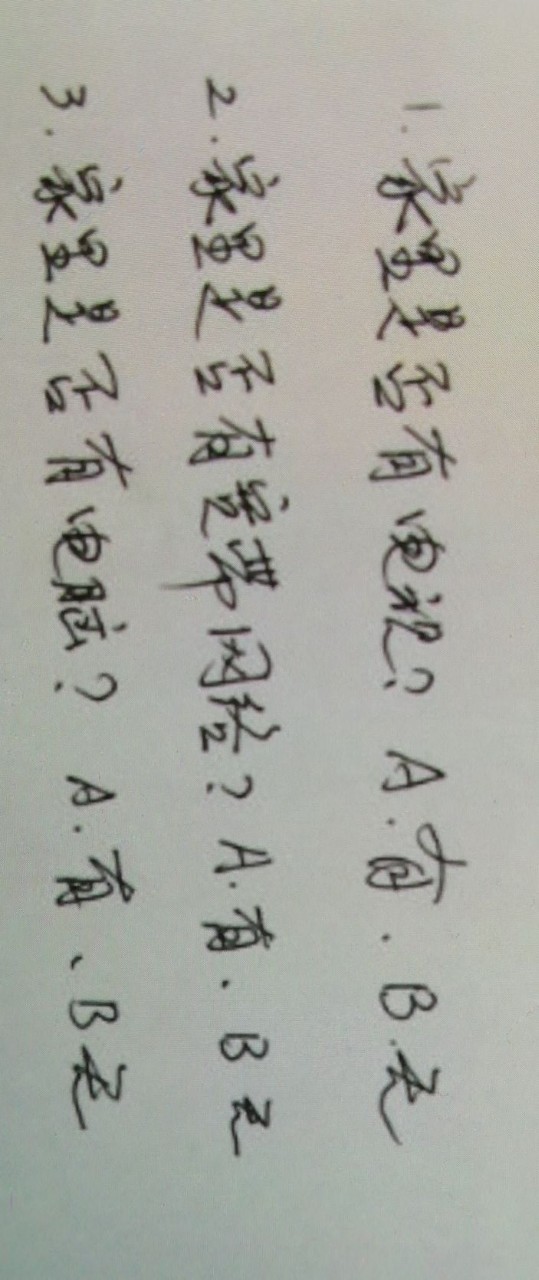 1. 家里是否有电视? A.有. B.无
2. 家里是否有宽带网络? A.有. B无
3. 家里是否有电脑? A.有、B无